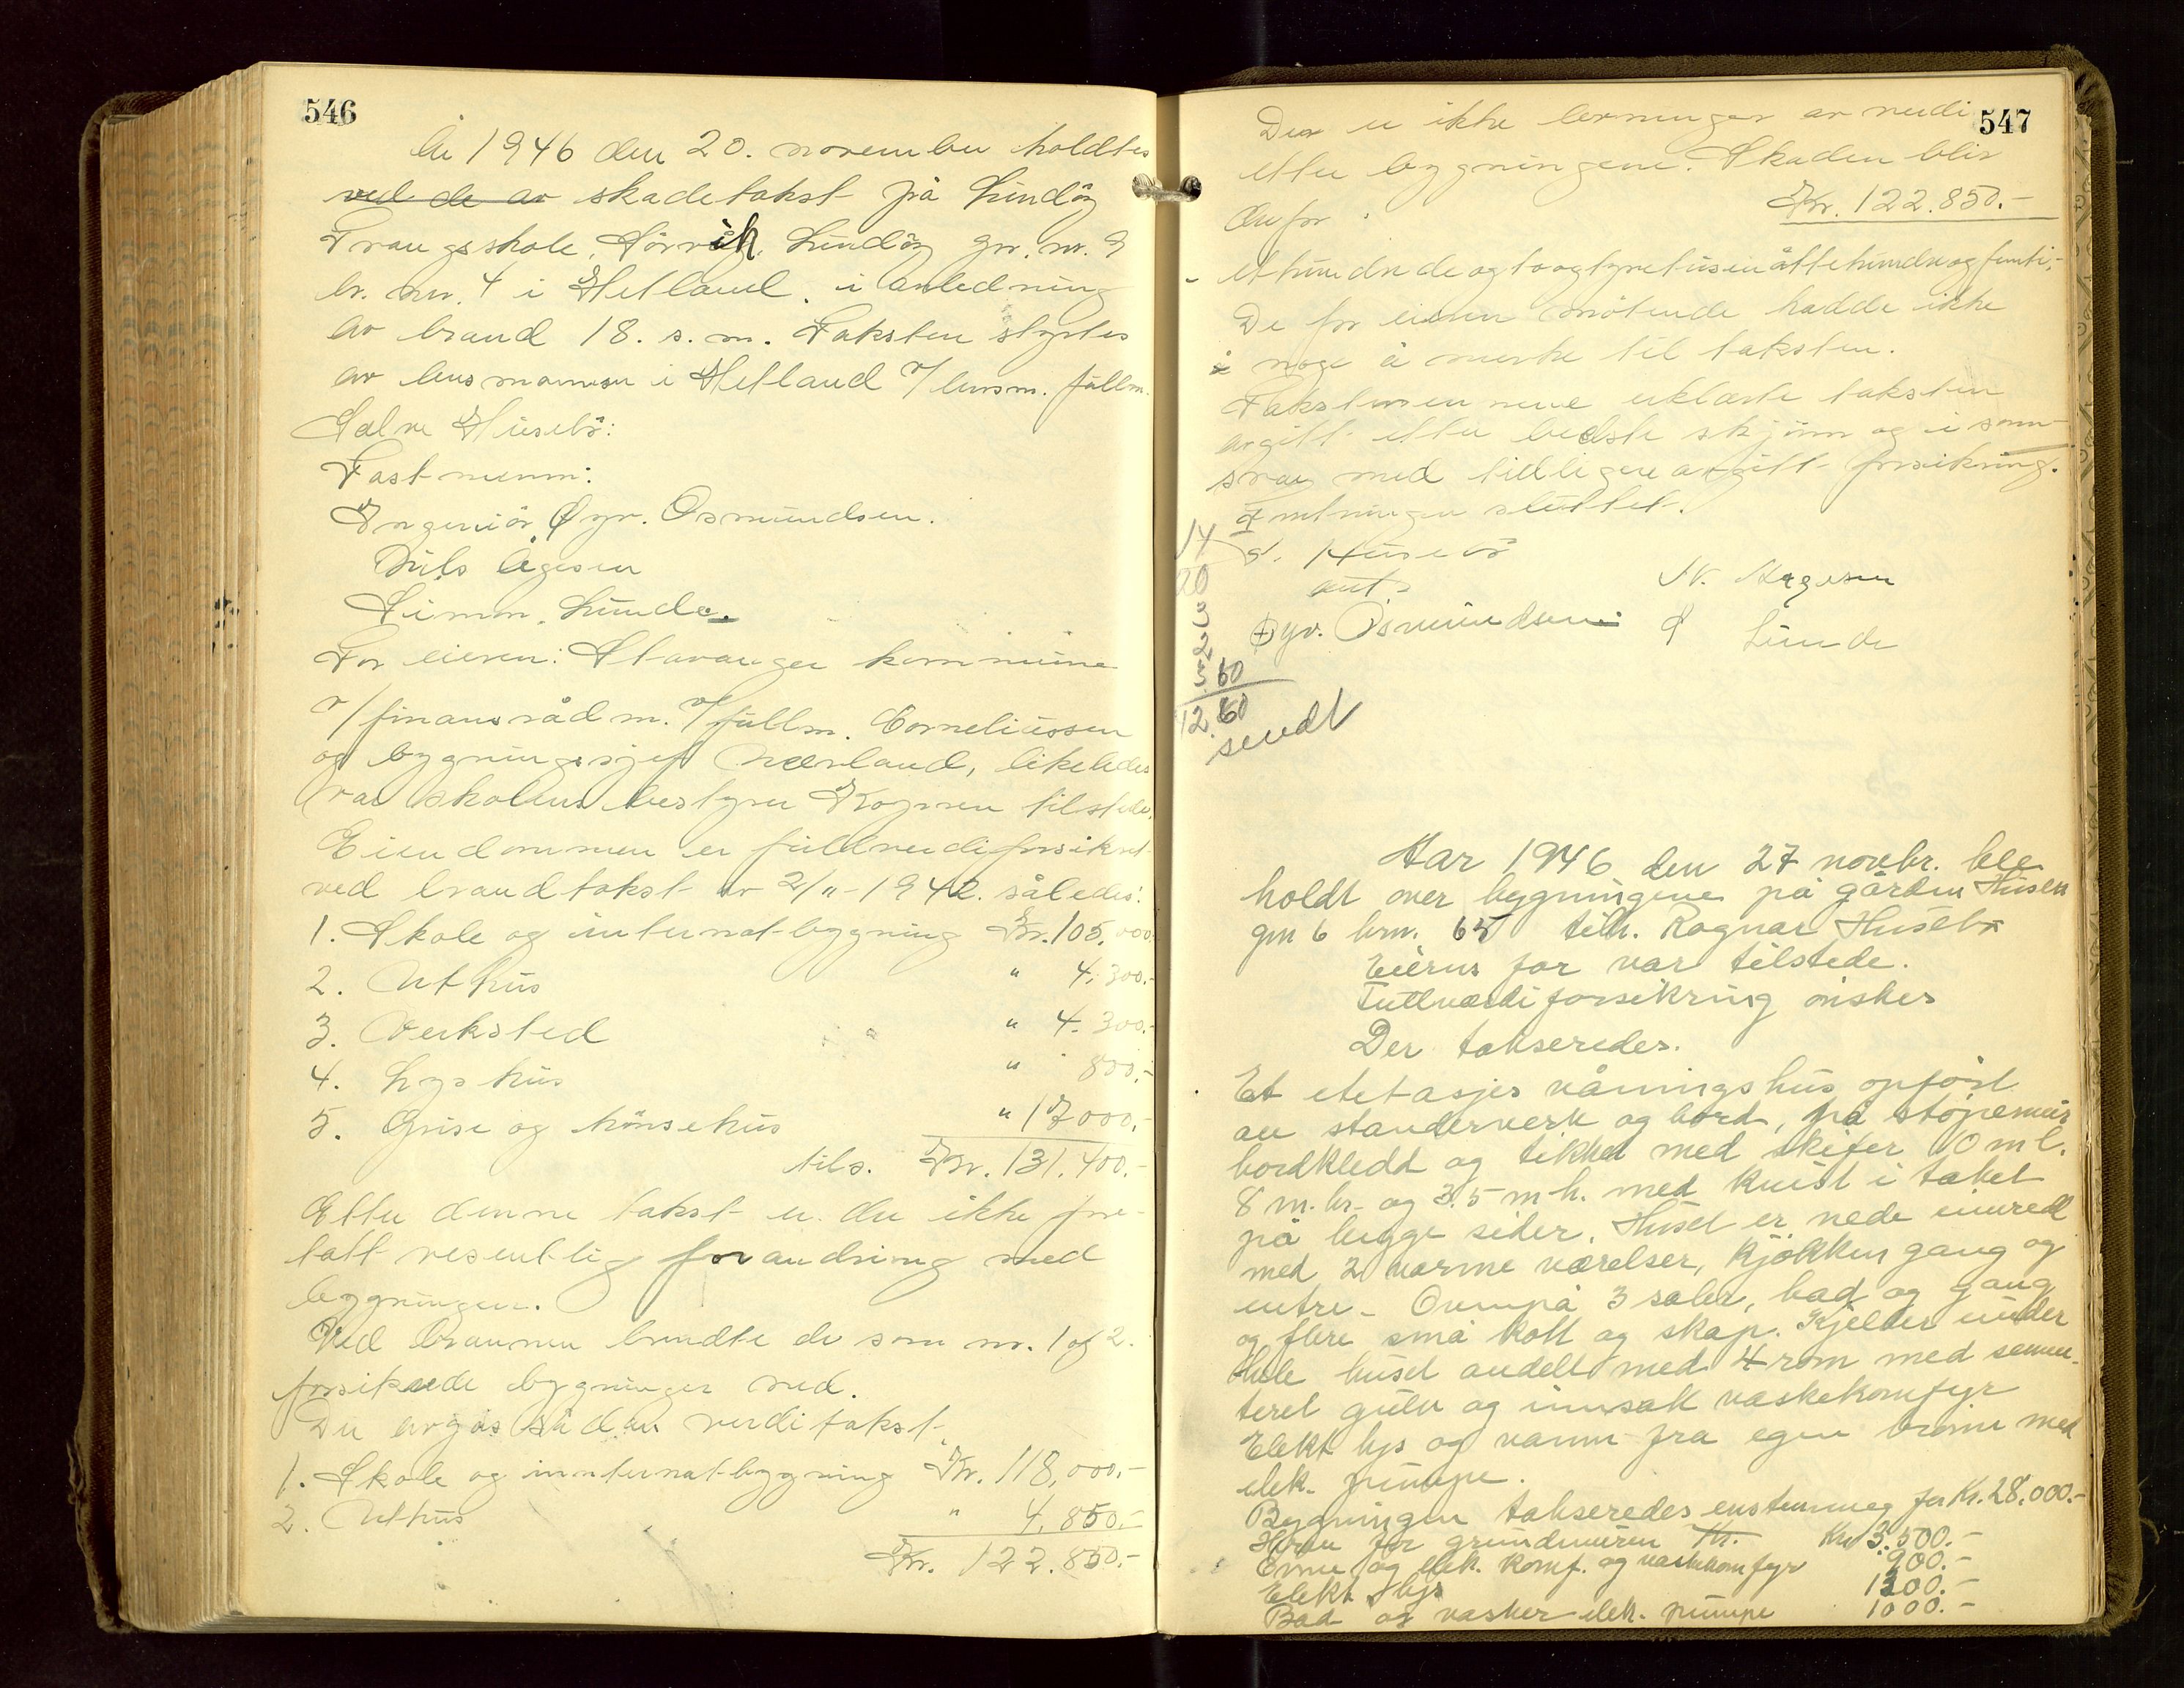 546
År 1946 den 20. november holdtes
ved de av skadetakst på Lindøy
Trangsskole, Sørvik, Lindøy gr. nr. 9
br. nr. 4 i Hetland i anledning
av brand 18. s. m. Taksten styrtes
av lensmannen i Hetland v/ lensm. fullm.
Salve Husebö:
Fastmenn:
Ingeniör Øyv. Osmundsen.
Nils Ågesen
Simm. Lunde.
For eieren: Stavanger kommune
v/ finansrådm. v/ fullm. Corneliussen
og bygningssjef Nærland, likeledes
var skolens bestyrer tilstede.
Eiendommen er fullverdiforsikret
ved brandtakst av 2/11-1942. således:
1. Skole og internat-bygning Kr. 105.000.-
2. Uthus " 4.300.-
3. Verksted " 4.300.-
4. Lyshus " 800.-
5. Grise og hönsehus " 17000.-
tils. Kr. 131.400.-
Etter denne takst er der ikke fore-
tatt vesentlig forandring med
bygningen.
Ved brannen brendte de som nr. 1 og 2.
forsikrede bygninger ned.
Der avgis sådan verditakst.
1. Skole og innternat-bygning Kr. 118,000.-
2. Uthus " 4.850.-
Kr. 122.850.-
547
Der er ikke levninger av verdi
etter bygningene. Skaden blir
derfor Kr. 122.850.-
- etthundredeogtoogtyvetusenåttehundreogfemti.-
De for eieren møtende hadde ikke
noge å merke til taksten.
Takstmennene erklærte taksten
avgitt etter bedste skjønn og i sam-
svar med tidligere avgitt forsikring.
Forretningen sluttet.
S. Husebö
aut.
N. Aagesen
Øyv. Osmundsen S Lunde
14
20
3
2
3.60
12.60
sendt
Aar 1946 den 27 novebr. ble
holdt over bygningene på gården Husebø
gnr 6 brn. 65 tilh. Ragnar Husebø
Eierens far var tilstede.
Fullverdiforsikring ønskes
Der takseredes.
Et etetasjes våningshus opført
av standerverk og bord, på støpemur
bordkledd og tekket med skifer 10 m l.
8 m. br. og 3.5 m h. med kvist i taket
på begge sider. Huset er nede innred
med 2 varme værelser, kjøkken gang og
entre - Ovenpå 3 saler, bad og gang
og flere små kott og skap. Kjeller under
hele huset andelt med 4 rom med semen-
teret gulv og innsatt vaskekomfyr
Elekt lys og vann fra egen brønn med
elek. pumpe.
Bygningen takseredes enstemmeg for Kr. 28.000.-
Herav for grundmuren Kr. Kr 3.500.-
Ovner og elek. komf. og vaskekomfyr 900.-
Elekt lys 1200.-
Bad og vasker elek. pumpe 1000.-